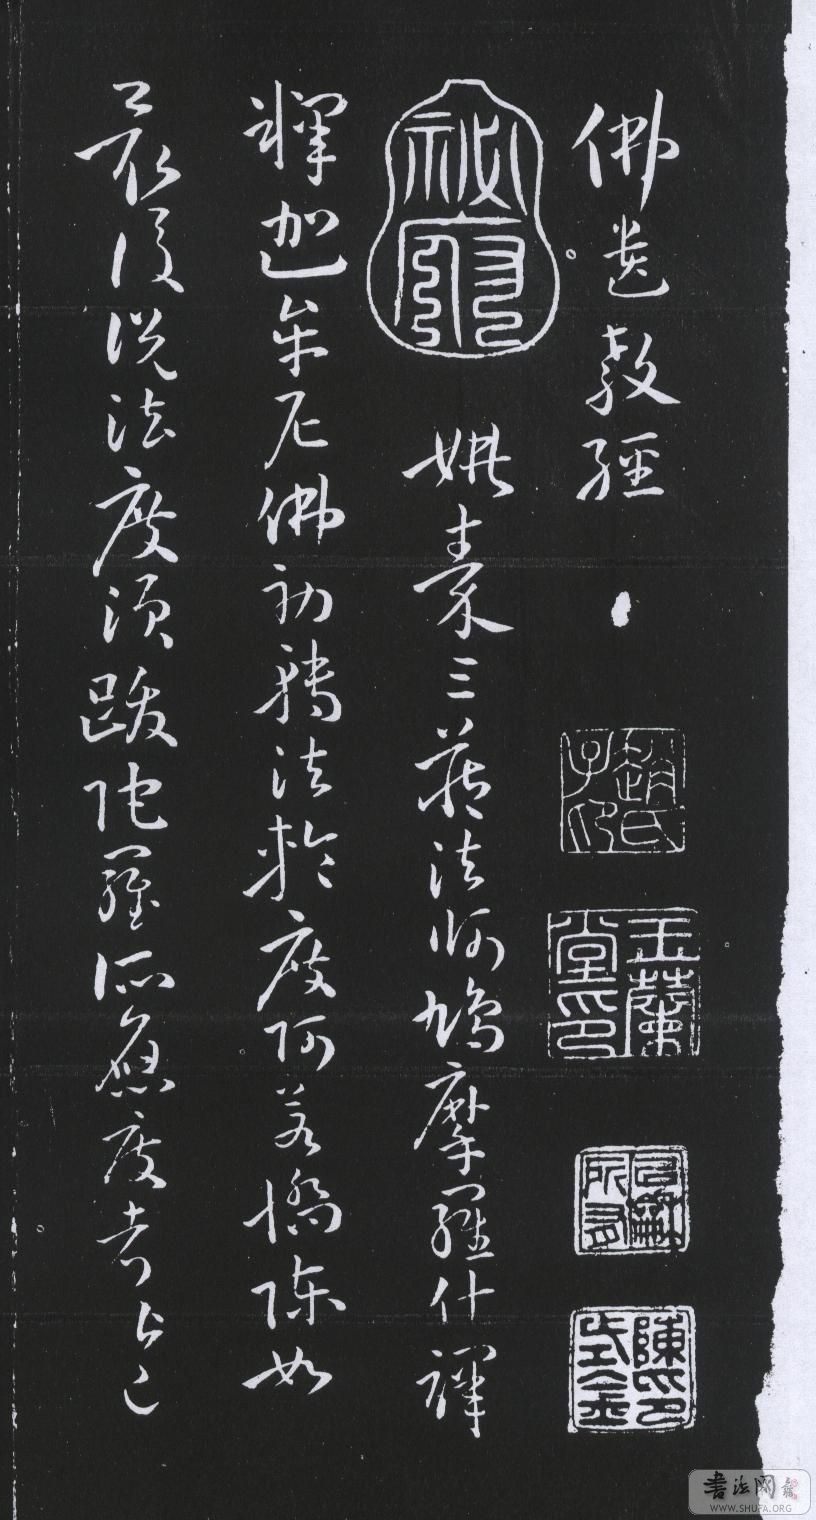 佛遺教經
趙氏子印
陳印式金
姚秦三藏法師鳩摩羅什譯
釋迦牟尼佛初轉法輪度阿若憍陳如
最後說法度須跋陀羅所應度者皆已
書法网
WWW.SHUFA.ORG